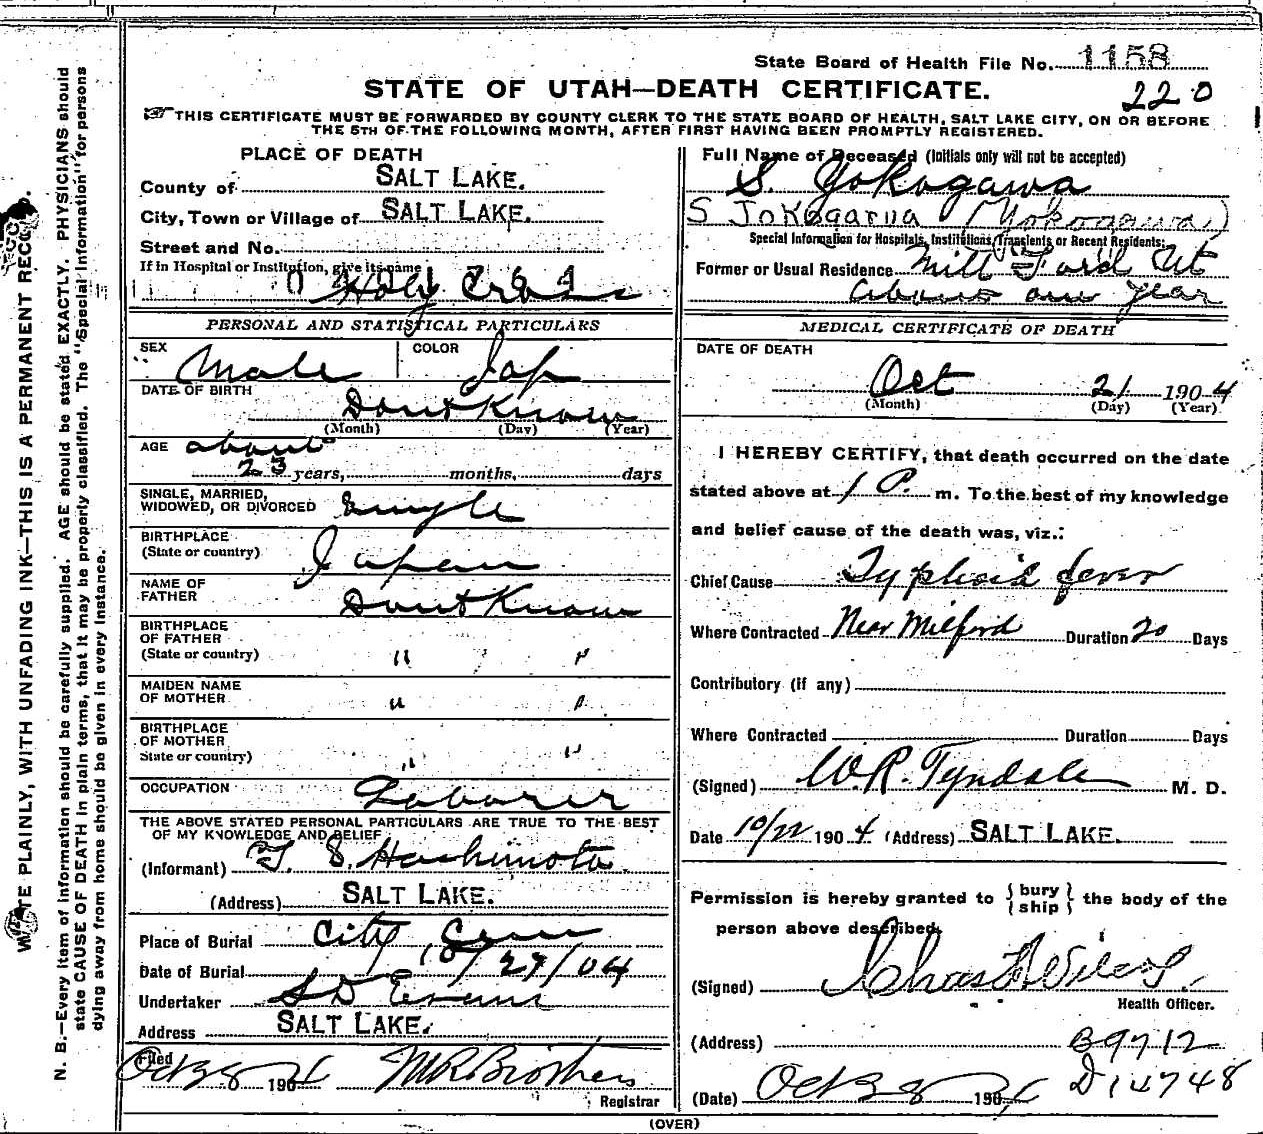 State Board of Health File No. 1158
STATE OF UTAH—DEATH CERTIFICATE.
220
THIS CERTIFICATE MUST BE FORWARDED BY COUNTY CLERK TO THE STATE BOARD OF HEALTH, SALT LAKE CITY, ON OR BEFORE
THE 5TH OF THE FOLLOWING MONTH, AFTER FIRST HAVING BEEN PROMPTLY REGISTERED.
PLACE OF DEATH
County of SALT LAKE.
City, Town or Village of SALT LAKE.
Street and No.
If in Hospital or Institution, give its name
Holy Cross
PERSONAL AND STATISTICAL PARTICULARS
SEX Male COLOR Jap
DATE OF BIRTH
Dont Know
(Month) (Day) (Year)
AGE about
23 years, months, days
SINGLE, MARRIED,
WIDOWED, OR DIVORCED Single
BIRTHPLACE
(State or country) Japan
NAME OF
FATHER Dont Know
BIRTHPLACE
OF FATHER
(State or country) " "
MAIDEN NAME
OF MOTHER " "
BIRTHPLACE
OF MOTHER
State or country) " "
OCCUPATION Laborer
THE ABOVE STATED PERSONAL PARTICULARS ARE TRUE TO THE BEST
OF MY KNOWLEDGE AND BELIEF
(Informant) T. S. Hashimoto
(Address) SALT LAKE.
Place of Burial City Cem
Date of Burial 10/27/04
Undertaker S D Evans
Address SALT LAKE.
Filed
Oct 28 1904 M R Brothers
Registrar
Full Name of Deceased (Initials only will not be accepted)
S. Yokogawa
S (Yokogawa)
Special Information for Hospitals, Institutions, Transients or Recent Residents:
Former or Usual Residence Mill Ford Ut
About one year
MEDICAL CERTIFICATE OF DEATH
DATE OF DEATH
Oct 21 1904
(Month) (Day) (Year)
I HEREBY CERTIFY, that death occurred on the date
stated above at 1 P. m. To the best of my knowledge
and belief cause of the death was, viz.:
Chief Cause Typhoid fever
Where Contracted Near Milford Duration 20 Days
Contributory (if any)
Where Contracted Duration Days
(Signed) W.R. Tyndale M. D.
Date 10/22 1904 (Address) SALT LAKE.
Permission is hereby granted to { bury } the body of the
{ ship }
person above described.
(Signed) Chas
Health Officer.
(Address) B9712
D14748
(Date) Oct 28 1904
(OVER)
WRITE PLAINLY, WITH UNFADING INK—THIS IS A PERMANENT RECORD.
N. B.—Every item of information should be carefully supplied. AGE should be stated EXACTLY. PHYSICIANS should
state CAUSE OF DEATH in plain terms, that it may be properly classified. The "Special Information" for persons
dying away from home should be given in every instance.